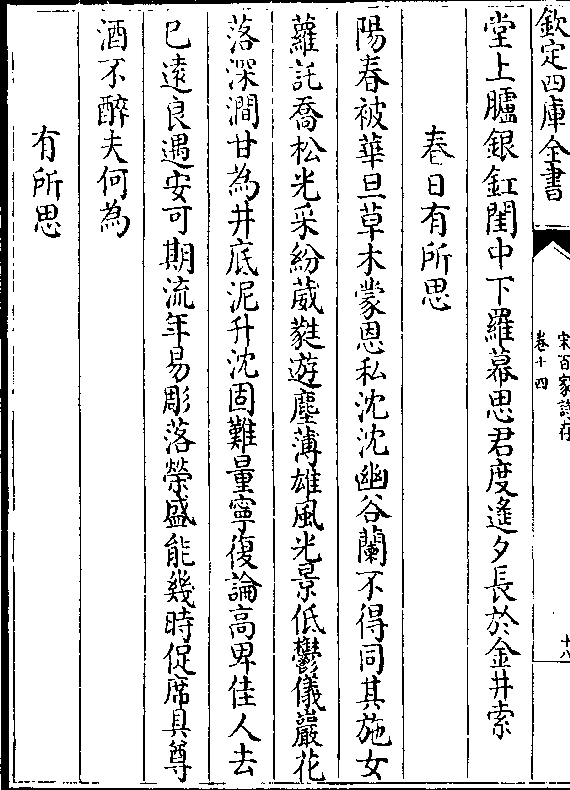 欽定四庫全書
宋百家詩存
卷十四
十八
堂上臚銀釭閨中下羅幕思君度遙夕長於金井索
春日有所思
陽春被華旦草木蒙恩私沈沈幽谷蘭不得同其施女
蘿託喬松光采紛葳蕤遊塵薄雄風光景低鬱儀巖花
落深澗甘為井底泥升沈固難量寧復論高卑佳人去
已遠良遇安可期流年易彫落榮盛能幾時促席具尊
酒不醉夫何為
有所思